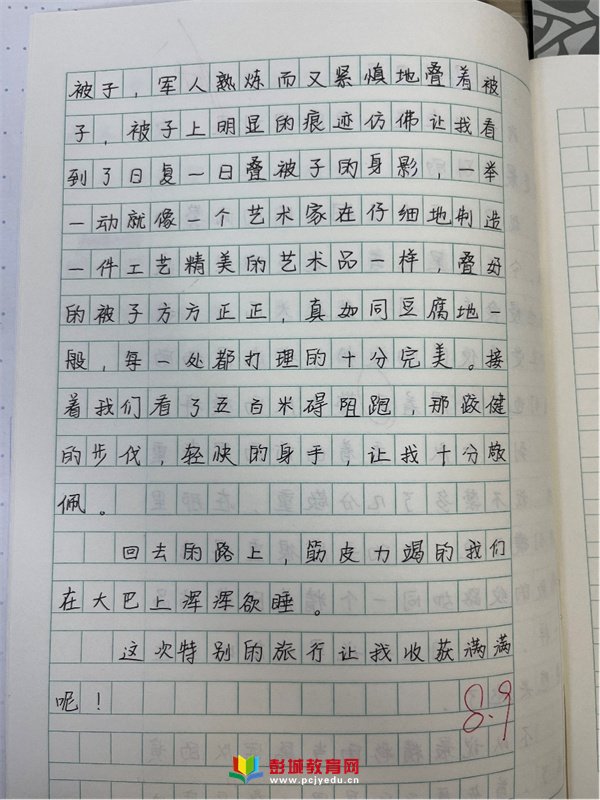 被子，军人熟炼而又紧慎地叠着被
子，被子上明显的痕迹仿佛让我看
到了日复一日叠被子的身影，一举
一动就像一个艺术家在仔细地制造
一件工艺精美的艺术品一样，叠好
的被子方方正正，真如同豆腐地一
般，每一处都打理的十分完美。接
着我们看了五百米碍阻跑，那跤健
的步伐，轻快的身手，让我十分敬
佩。
回去的路上，筋皮力竭的我们
在大巴上浑浑欲睡。
这次特别的旅行让我收获满满
呢！
8.9
彭城教育网
www.pcjyedu.cn